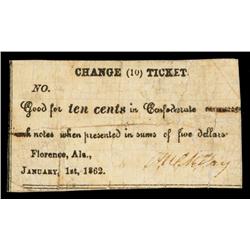 CHANGE (10) TICKET.
NO.
Good for ten cents in Confederate
notes when presented in sums of five dollars
Florence, Ala.,
JANUARY, 1st, 1862.